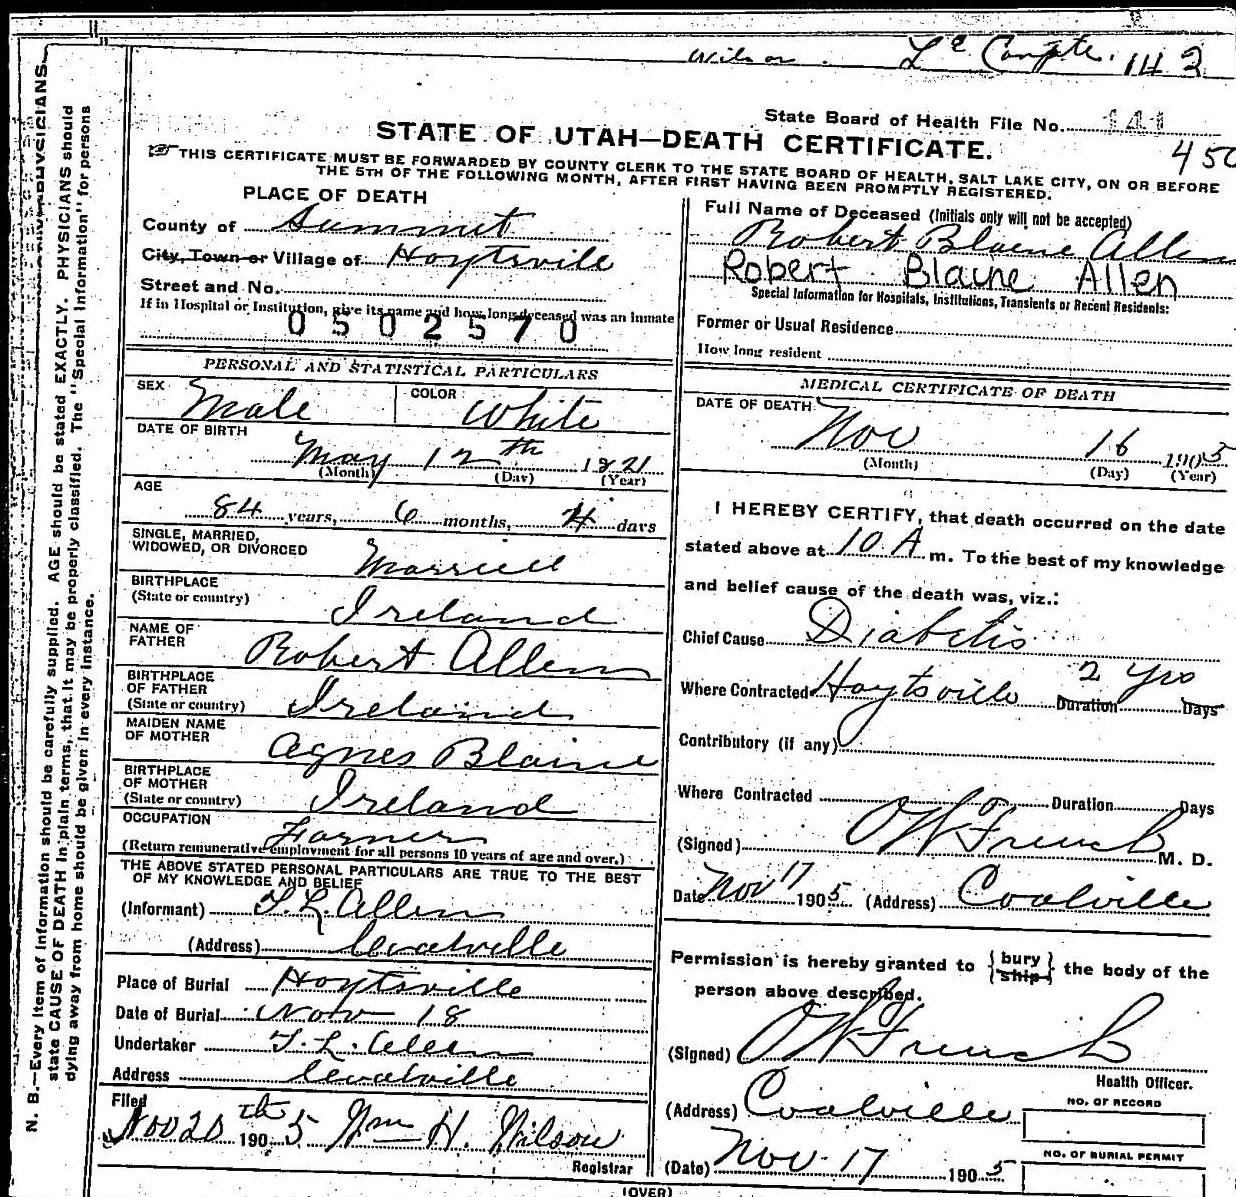 Wilson. Le Compte. 143
State Board of Health File No. 141
STATE OF UTAH—DEATH CERTIFICATE.
450
THIS CERTIFICATE MUST BE FORWARDED BY COUNTY CLERK TO THE STATE BOARD OF HEALTH, SALT LAKE CITY, ON OR BEFORE
THE 5TH OF THE FOLLOWING MONTH, AFTER FIRST HAVING BEEN PROMPTLY REGISTERED.
PLACE OF DEATH
County of Summit
City, Town or Village of Hoytsville
Street and No.
If in Hospital or Institution, give its name and how long deceased was an inmate
0502570
PERSONAL AND STATISTICAL PARTICULARS
SEX Male COLOR White
DATE OF BIRTH
May 12th 1821
(Month) (Day) (Year)
AGE
84 years, 6 months, 4 days
SINGLE, MARRIED,
WIDOWED, OR DIVORCED Married
BIRTHPLACE
(State or country) Ireland
NAME OF
FATHER Robert Allen
BIRTHPLACE
OF FATHER
(State or country) Ireland
MAIDEN NAME
OF MOTHER Agnes Blaine
BIRTHPLACE
OF MOTHER
(State or country) Ireland
OCCUPATION Farmer
(Return remunerative employment for all persons 10 years of age and over.)
THE ABOVE STATED PERSONAL PARTICULARS ARE TRUE TO THE BEST
OF MY KNOWLEDGE AND BELIEF
(Informant) T. L. Allen
(Address) Coalville
Place of Burial Hoytsville
Date of Burial Nov 18
Undertaker T. L. Allen
Address Coalville
Filed
Nov 20th 1905 Wm H. Wilson
Registrar
Full Name of Deceased (Initials only will not be accepted)
Robert Blaine Allen
Robert Blaine Allen
Special Information for Hospitals, Institutions, Transients or Recent Residents:
Former or Usual Residence
How long resident
MEDICAL CERTIFICATE OF DEATH
DATE OF DEATH
Nov 16 1905
(Month) (Day) (Year)
I HEREBY CERTIFY, that death occurred on the date
stated above at 10 A m. To the best of my knowledge
and belief cause of the death was, viz.:
Chief Cause Diabetis
Where Contracted Hoytsville Duration 2 yrs Days
Contributory (if any)
Where Contracted Duration Days
(Signed) O W French M. D.
Date Nov 17 1905 (Address) Coalville
Permission is hereby granted to {bury ship} the body of the
person above described.
(Signed) O W French
Health Officer.
(Address) Coalville
NO. OF RECORD
NO. OF BURIAL PERMIT
(Date) Nov. 17 1905
(OVER)
N. B.—Every item of information should be carefully supplied. AGE should be stated EXACTLY. PHYSICIANS should
state CAUSE OF DEATH in plain terms, that it may be properly classified. The "Special Information" for persons
dying away from home should be given in every instance.